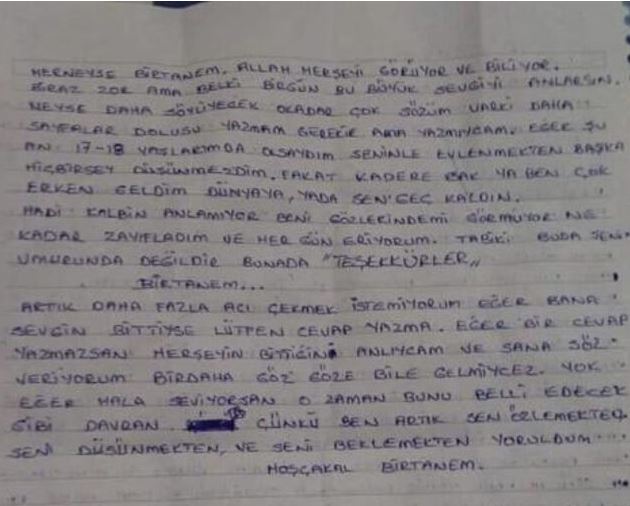 HERNEYSE BİRTANEM. ALLAH HERŞEYİ GÖRÜYOR VE BİLİYOR.
BİRAZ ZOR AMA BELKİ BİRGÜN BU BÜYÜK SEVGİYİ ANLARSIN.
NEYSE DAHA SÖYLİYECEK OKADAR ÇOK SÖZÜM VARKİ DAHA
SAYFALAR DOLUSU YAZMAM GEREKİR AMA YAZMIYCAM. EĞER ŞU
AN 17-18 YAŞLARIMDA OLSAYDIM SENİNLE EVLENMEKTEN BAŞKA
HİÇBİRŞEY DÜŞÜNMEZDİM. FAKAT KADERE BAK YA BEN ÇOK
ERKEN GELDİM DÜNYAYA, YADA SEN GEÇ KALDIN.
HADİ KALBİN ANLAMIYOR BENİ GÖZLERİNDEMİ GÖRMÜYOR NE
KADAR ZAYIFLADIM VE HER GÜN ERİYORUM. TABİKİ BUDA SENİN
UMURUNDA DEĞİLDİR BUNADA "TEŞEKKÜRLER,,
BİRTANEM...
ARTIK DAHA FAZLA ACI ÇEKMEK İSTEMİYORUM EĞER BANA
SEVGİN BİTTİYSE LÜTFEN CEVAP YAZMA. EĞER BİR CEVAP
YAZMAZSAN HERŞEYİN BİTTİĞİNİ ANLIYCAM VE SANA SÖZ
VERİYORUM BİRDAHA GÖZ GÖZE BİLE GELMİYCEZ. YOK
EĞER HALA SEVİYORSAN O ZAMAN BUNU BELLİ EDECEK
GİBİ DAVRAN ÇÜNKÜ BEN ARTIK SENİ ÖZLEMEKTEN,
SENİ DÜŞÜNMEKTEN, VE SENİ BEKLEMEKTEN YORULDUM...
HOŞÇAKAL BİRTANEM.